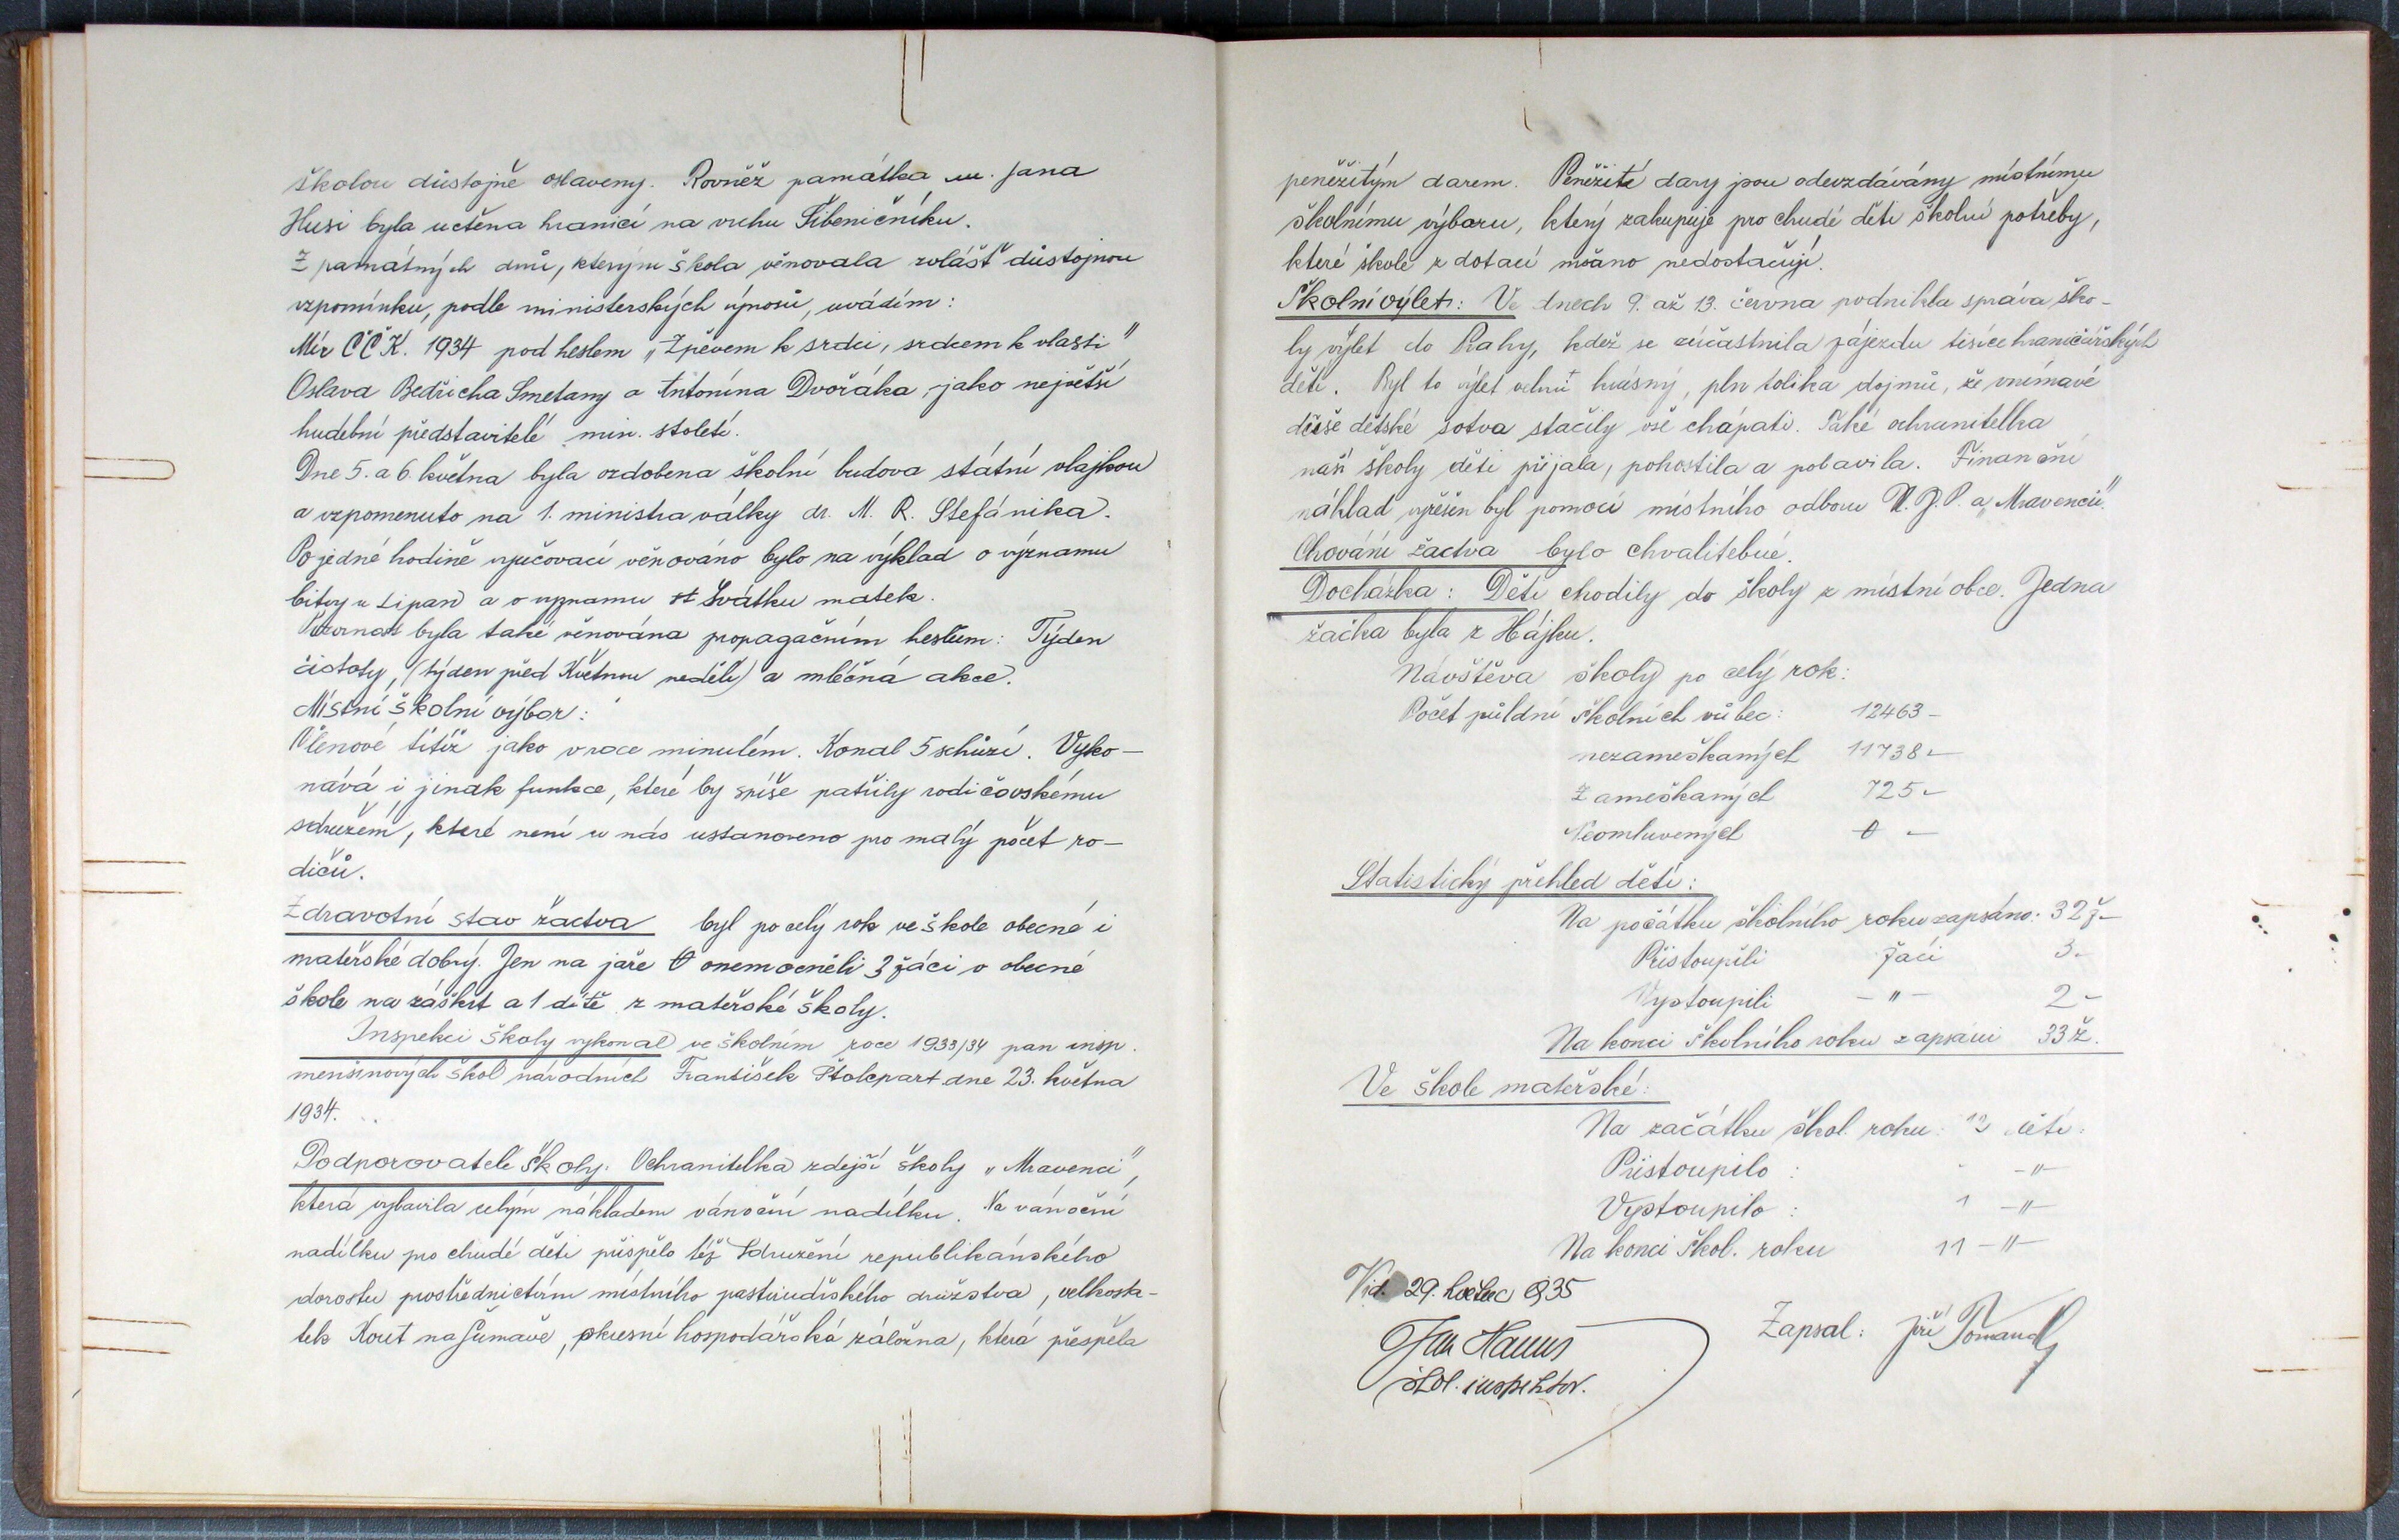 školou důstojně oslaveny. Rovněž památka m. Jana
Husi byla uctěna hranicí na vrchu Šibeničníku.
Z památných dnů, kterým škola věnovala zvlášť důstojnou
vzpomínku, podle ministerských výnosů, uvádím:
Mír ČČK. 1934 pod heslem „Zpěvem k srdci, srdcem k vlasti"
Oslava Bedřicha Smetany a Antonína Dvořáka, jako největší
hudební představitelé min. století.
Dne 5. a 6. května byla ozdobena školní budova státní vlajkou
a vzpomenuto na 1. ministra války dr. M. R. Štefánika.
Po jedné hodině vyučovací věnováno bylo na výklad o významu
bitvy u Lipan a o významu Svátku matek.
Pozornost byla také věnována propagačním heslům: Týden
čistoty, (týden před Květnou nedělí) a mléčná akce.
Místní školní výbor:
Členové titíž jako v roce minulém. Konal 5 schůzí. Vyko-
nává i jinak funkce, které by spíše patřily rodičovskému
sdružení, které není u nás ustanoveno pro malý počet ro-
dičů.
Zdravotní stav žactva byl po celý rok ve škole obecné i
mateřské dobrý. Jen na jaře onemocněli 3 žáci v obecné
škole na záškrt a 1 dítě z mateřské školy.
Inspekci školy vykonal ve školním roce 1933/34 pan insp.
menšinových škol národních František Štolcpart dne 23. května
1934.
Podporovatelé školy. Ochranitelka zdejší školy „Mravenci",
která vybavila celým nákladem vánoční nadílku. Na vánoční
nadílku pro chudé děti přispělo též Sdružení republikánského
dorostu prostřednictvím místního pastvinářského družstva, velkosta-
tek Kout na Šumavě, okresní hospodářská záložna, která přispěla
peněžitým darem. Peněžité dary jsou odevzdávány místnímu
školnímu výboru, který zakupuje pro chudé děti školní potřeby,
které škole z dotací nedostačují.
Školní výlet: Ve dnech 9. až 13. června podnikla správa ško-
ly výlet do Prahy, kdež se zúčastnila zájezdu tisíce hraničářských
dětí. Byl to výlet velmi krásný, pln tolika dojmů, že vnímavé
duše dětské sotva stačily vše chápati. Také ochranitelka
naší školy děti přijala, pohostila a pobavila. Finanční
náklad vyřešen byl pomocí místního odboru N.J.P. a „Mravenců".
Chování žactva bylo chvalitebné.
Docházka: Děti chodily do školy z místní obce. Jedna
žačka byla z Hájku.
Návštěva školy po celý rok:
Počet půldní školních vůbec: 12463 -
nezameškaných 11738 -
Zameškaných 725 -
Neomluvených 0 -
Statistický přehled dětí:
Na počátku školního roku zapsáno: 32 ž -
Přistoupili žáci 3 -
Vystoupili - " - 2 -
Na konci školního roku zapsáni 33 ž.
Ve škole mateřské:
Na začátku škol. roku: 12 dětí:
Přistoupilo : - - " -
Vystoupilo : 1 - " -
Na konci škol. roku 11 - " -
Vid. 29. května 935
Zapsal: Jiří Tomandl
Jan Hanus
škol. inspektor.